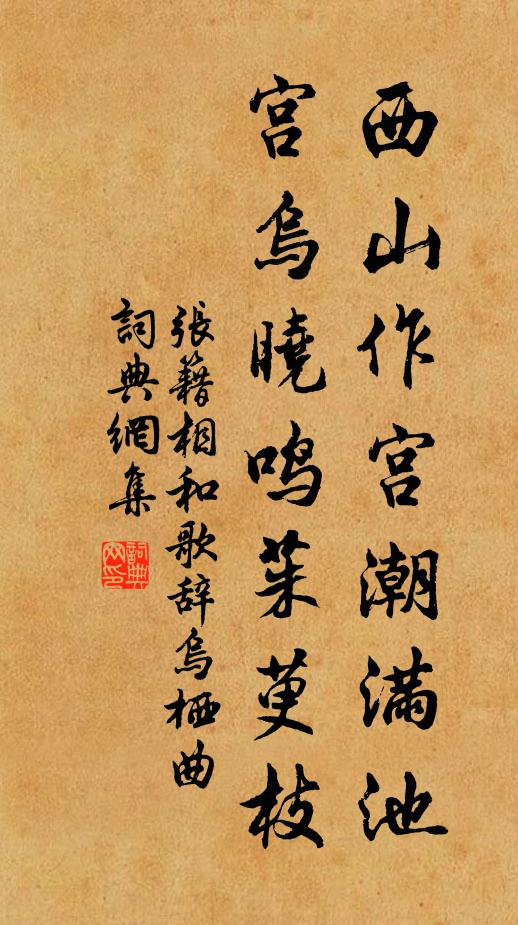 西山作宮潮滿池
宮烏曉鳴茱萸枝
張籍相和歌辭烏栖曲
詞典網集
詞典网印